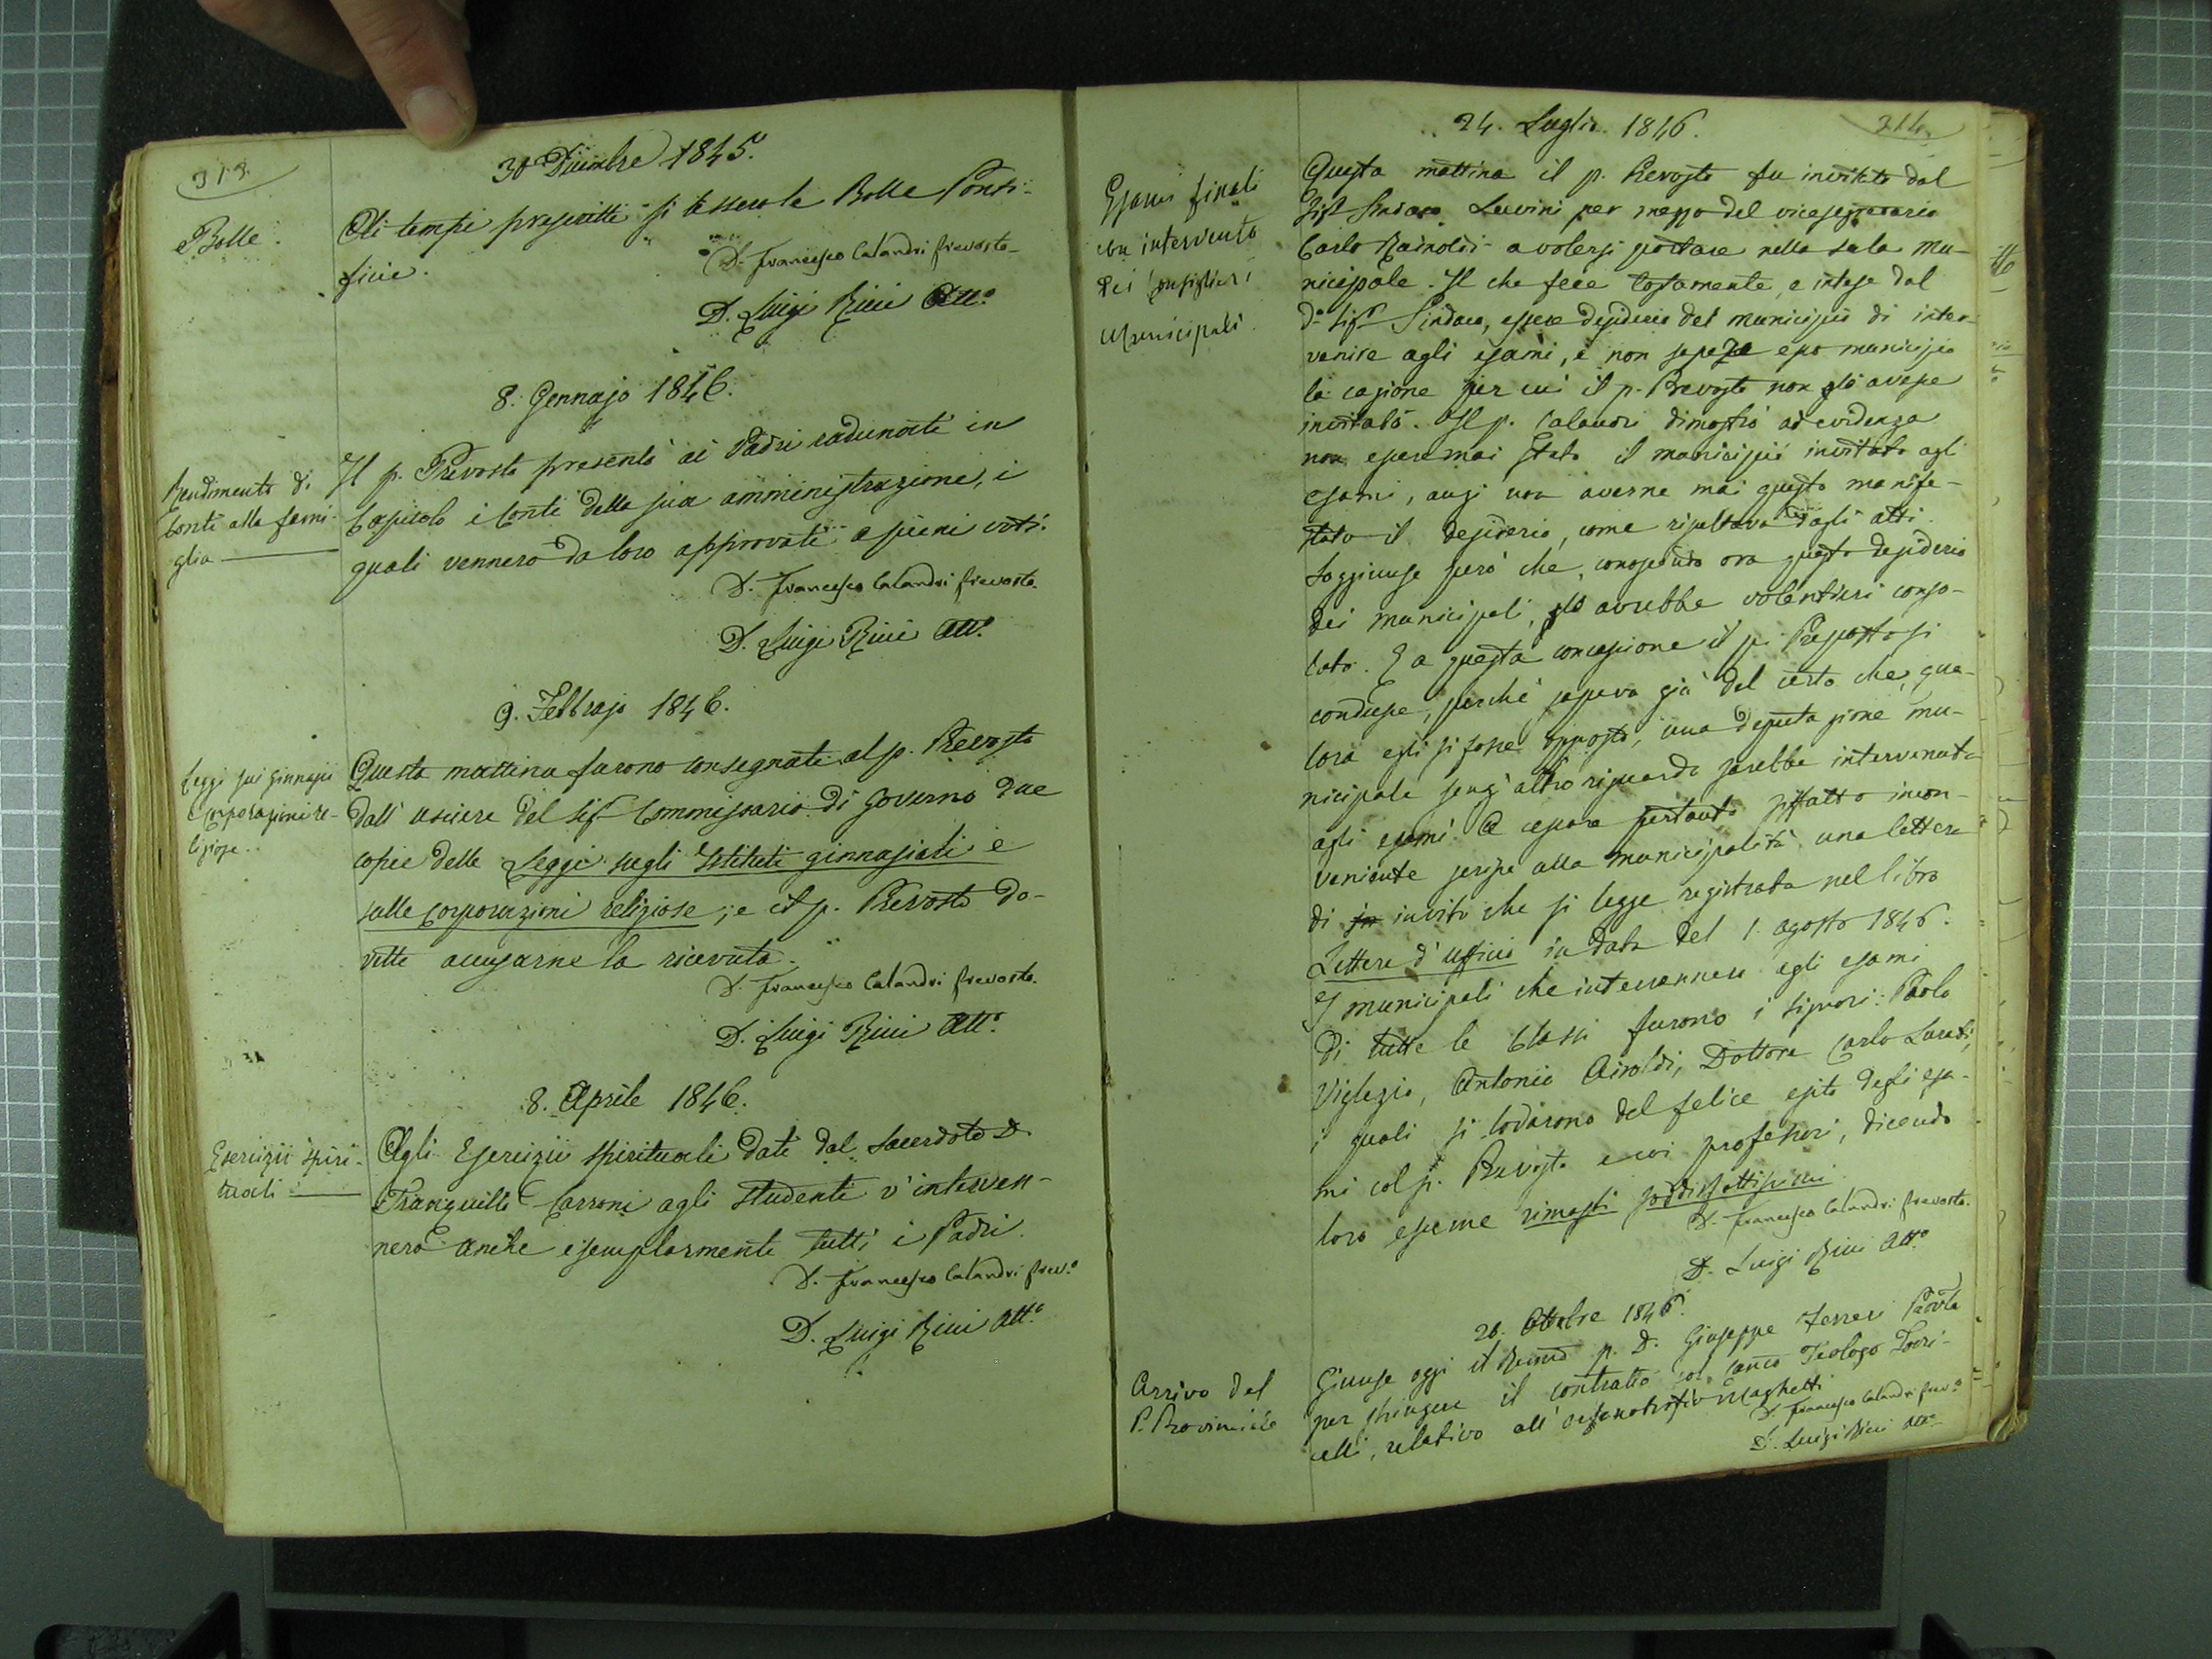 313.
30 Dicembre 1845.
Bolle.
Ai tempi prescritti si lessero le Bolle Ponti-
ficie.
D. Francesco Calandri prevosto
D. Luigi Rini Att.o
8. Gennajo 1846.
Rendimento di
Conti alla fami-
glia
Il p. Prevosto presentò ai Padri radunati in
Capitolo i Conti della sua amministrazione, i
quali vennero da loro approvati a pieni voti.
D. Francesco Calandri prevosto.
D. Luigi Rini Att.o
9. Febbrajo 1846.
Leggi sui Ginnasii
e Corporazioni re-
ligiose.
Questa mattina furono consegnate al p. Prevosto
dall' usciere del Sigr Commissario di Governo due
copie delle Leggi sugli Istituti ginnasiali e
sulle Corporazioni religiose; e il p. Prevosto do-
vette accusarne la ricevuta.
D. Francesco Calandri prevosto.
D. Luigi Rini Att.o
8. Aprile 1846.
Esercizii spiri-
tuali
Agli Esercizii spirituali dati dal Sacerdote D.
Tranquillo Carroni agli studenti v' interven-
nero anche esemplarmente tutti i Padri.
D. Francesco Calandri prev.o
D. Luigi Rini Att.o
314.
24. Luglio. 1846.
Esami finali
con intervento
dei Consiglieri
Municipali.
Questa mattina il p. Prevosto fu invitato dal
Sigr Sindaco Luvini per mezzo del vicesegretario
Carlo Rainoldi a volersi portare nella sala mu-
nicipale. Il che fece tostamente, e intese dal
d.o Sigr Sindaco, essere desiderio del municipio di inter-
venire agli esami, e non sapeze esso municipio
la cagione per cui il p. Prevosto non glo avesse
invitato. Il p. Calandri dimostrò ad evidenza
non essere mai stato il municipio invitato agli
esami, anzi non averne mai questo manife-
stato il desiderio, come risultava dagli atti.
Soggiunse però che, conoscendo ora questo desiderio
dei municipali, glo avrebbe volentieri conso-
lato. E a questa concessione il p. Preposto si
condusse, perché sapeva già del certo che, qua-
lora egli si fosse opposto, una deputazione mu-
nicipale senz' altro riguardo sarebbe intervenuta
agli esami. A cessare pertanto siffatto incon-
veniente scrisse alla municipalità una lettera
di in invito che si legge registrata nel libro
Lettere d' ufficio in data del 1. agosto 1846.
I municipali che intervennero agli esami
di tutte le classi furono i signori: Paolo
Viglezio, Antonio Airoldi, Dottore Carlo Lurati,
i quali si lodarono del felice esito degli esa-
mi col p. Prevosto e coi professori, dicendo
loro esserne rimasti soddisfattissimi.
D. Francesco Calandri prevosto.
D. Luigi Rini Att.o
Ottobre 1846.
Arrivo del
P. Provinciale
Giunse oggi il Revmo p. D. Giuseppe Ferreri Provle
per stringere il contratto col Canco Teologo Torri-
celli, relativo all' orfanotrofio Maghetti
D. Francesco Calandri prev.o
D. Luigi Rini Att.o